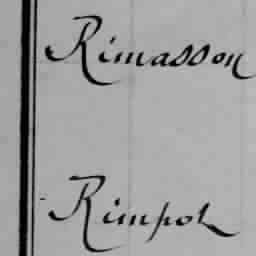 Rimasson
Rimpot